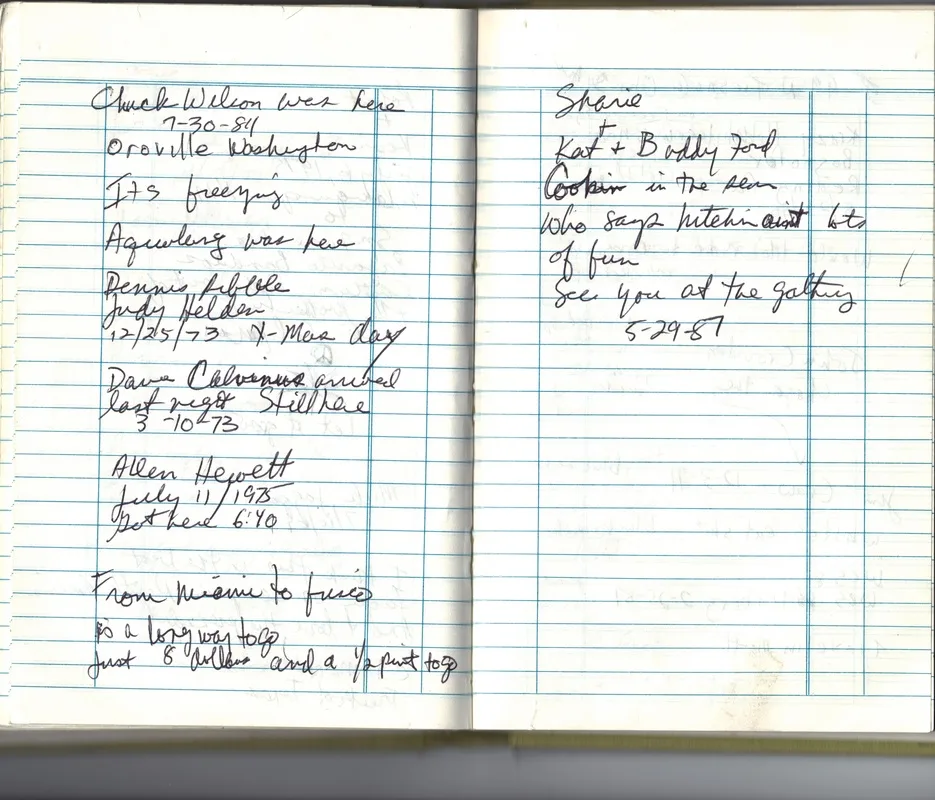 Chuck Wilson was here
7-30-84
Oroville Washington
Its freezing
Aqualung was here
Dennis
Judy Helden
12/25/73 X-Mas day
Dave Calvinus arrived
last night Still here
3-10-73
Allen Hewett
July 11/1975
Got here 6:40
From Miami to frisco
is a long way to go
Just 8 dollars and a 1/2 pint to go
Sharie
+
Kat + Buddy Ford
Cookin in the sun
Who says hitchin aint lots
of fun
See you at the gathring
5-29-87